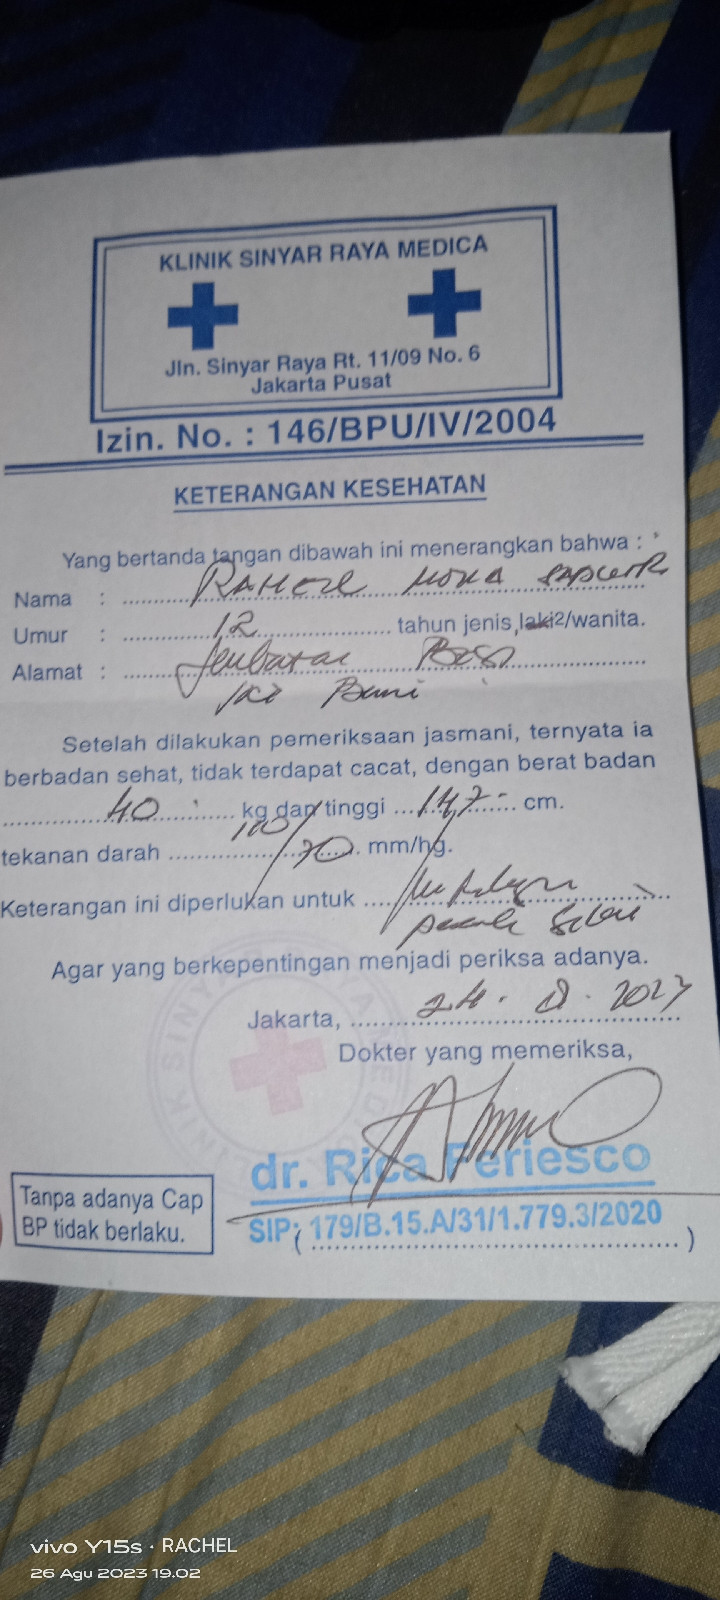 KLINIK SINYAR RAYA MEDICA
Jln. Sinyar Raya Rt. 11/09 No. 6
Jakarta Pusat
Izin. No. : 146/BPU/IV/2004
KETERANGAN KESEHATAN
Yang bertanda tangan dibawah ini menerangkan bahwa :
Nama :
Umur : 12 tahun jenis, laki2/wanita.
Alamat : Jembatan Besi
Setelah dilakukan pemeriksaan jasmani, ternyata ia
berbadan sehat, tidak terdapat cacat, dengan berat badan
40 kg dan tinggi 147 cm.
tekanan darah 100/70 mm/hg.
Keterangan ini diperlukan untuk
Agar yang berkepentingan menjadi periksa adanya.
Jakarta, 24 . 8 . 2023
Dokter yang memeriksa,
dr. Rica Feriesco
SIP: 179/B.15.A/31/1.779.3/2020
Tanpa adanya Cap
BP tidak berlaku.
vivo Y15s · RACHEL
26 Agu 2023 19.02